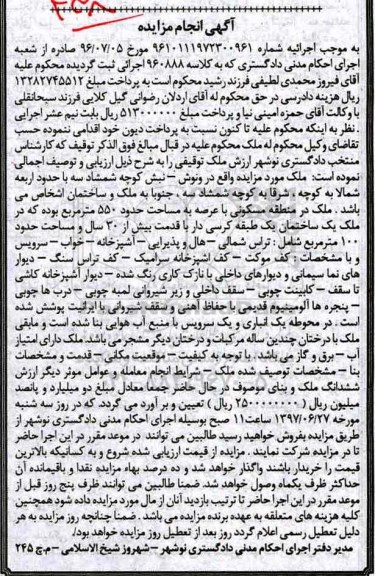 آگهی انجام مزایده
به موجب اجرائیه شماره ۹۶۱۰۱۱۱۹۷۲۳۰۰۹۶۱ مورخ ۹۶/۰۷/۰۵ صادره از شعبه
اجرای احکام مدنی دادگستری که به کلاسه ۹۶۰۸۸۸ اجرائی ثبت گردیده محکوم علیه
آقای فیروز محمدی لطیفی فرزند رشید محکوم است به پرداخت مبلغ ۱۳۲۸۲۷۴۵۵۱۲
ریال هزینه دادرسی در حق محکوم له آقای اردلان رضوانی گیل کلایی فرزند سیحانقلی
با وکالت آقای حمزه امینی نیا و پرداخت مبلغ ۵۱۳۰۰۰۰۰۰ ریال بابت نیم عشر اجرایی
. نظر به اینکه محکوم علیه تا کنون نسبت به پرداخت دیون خود اقدامی ننموده حسب
تقاضای وکیل محکوم له ملک محکوم علیه در قبال مبالغ فوق الذکر توقیف که کارشناس
منتخب دادگستری نوشهر ارزش ملک توقیفی را به شرح ذیل ارزیابی و توصیف اجمالی
نموده است: ملک مورد مزایده واقع در ونوش – نبش کوچه شمشاد سه با حدود اربعه
شمالا به کوچه ، شرقا به کوچه شمشاد سه ، جنوبا به ملک و ساختمان اشخاص می
باشد . ملک در منطقه مسکونی با عرصه به مساحت حدود ۵۵۰ مترمربع بوده که در
ملک یک ساختمان یک طبقه کرسی دار با قدمت بیش از ۳۰ سال و مساحت حدود
۱۰۰ مترمربع شامل : تراس شمالی – هال و پذیرایی – آشپزخانه – خواب – سرویس
و با مشخصات : کف موکت – کف آشپزخانه سرامیک – کف تراس سنگ – دیوار
های نما سیمانی و دیوارهای داخلی با نازک کاری رنگ شده – دیوار آشپزخانه کاشی
تا سقف – کابینت چوبی – سقف داخلی و زیر شیروانی لمبه چوبی – درب ها چوبی
– پنجره ها آلومینیوم قدیمی با حفاظ آهنی و سقف شیروانی با ایرانیت پوشش شده
است . در محوطه یک انباری و یک سرویس با منبع آب هوایی بنا شده است و مابقی
ملک با درختان چندین ساله مرکبات و درختان دیگر مشجر می باشد. ملک دارای امتیاز
آب – برق و گاز می باشد . با توجه به کیفیت – موقعیت مکانی – قدمت و مشخصات
بنا – مشخصات توصیف شده ملک – شرایط انجام معامله و عوامل موثر دیگر ارزش
ششدانگ ملک و بنای موصوف در حال حاضر جمعا معادل مبلغ دو میلیارد و پانصد
میلیون ریال ( ۲۵۰۰۰۰۰۰۰۰ ریال ) تعیین و بر آورد می گردد. که در روز سه شنبه
مورخه ۱۳۹۷/۰۶/۲۷ ساعت۱۱ صبح بوسیله اجرای احکام مدنی دادگستری نوشهر از
طریق مزایده بفروش خواهد رسید طالبین می توانند در موعد مقرر در این اجرا حاضر
تا در مزایده شرکت نمایند . مزایده از قیمت ارزیابی شده شروع و به کسانیکه بالاترین
قیمت را خریدار باشند واگذار خواهد شد و ده درصد بهاء مزایده نقدا و باقیمانده آن
حداکثر ظرف یکماه وصول خواهد شد. ضمنا طالبین می توانند ظرف پنج روز قبل از
موعد مقرر در این اجرا حاضر تا ترتیب بازدید آنان از مال مورد مزایده داده شود همچنین
کلیه هزینه های متعلقه به عهده برنده مزایده می باشد . ضمنا چنانچه روز مزایده به هر
دلیل تعطیل رسمی اعلام گردد روز بعد از تعطیل روز مزایده خواهد بود./
مدیر دفتر اجرای احکام مدنی دادگستری نوشهر – شهروز شیخ الاسلامی – م.ج ۲۴۵